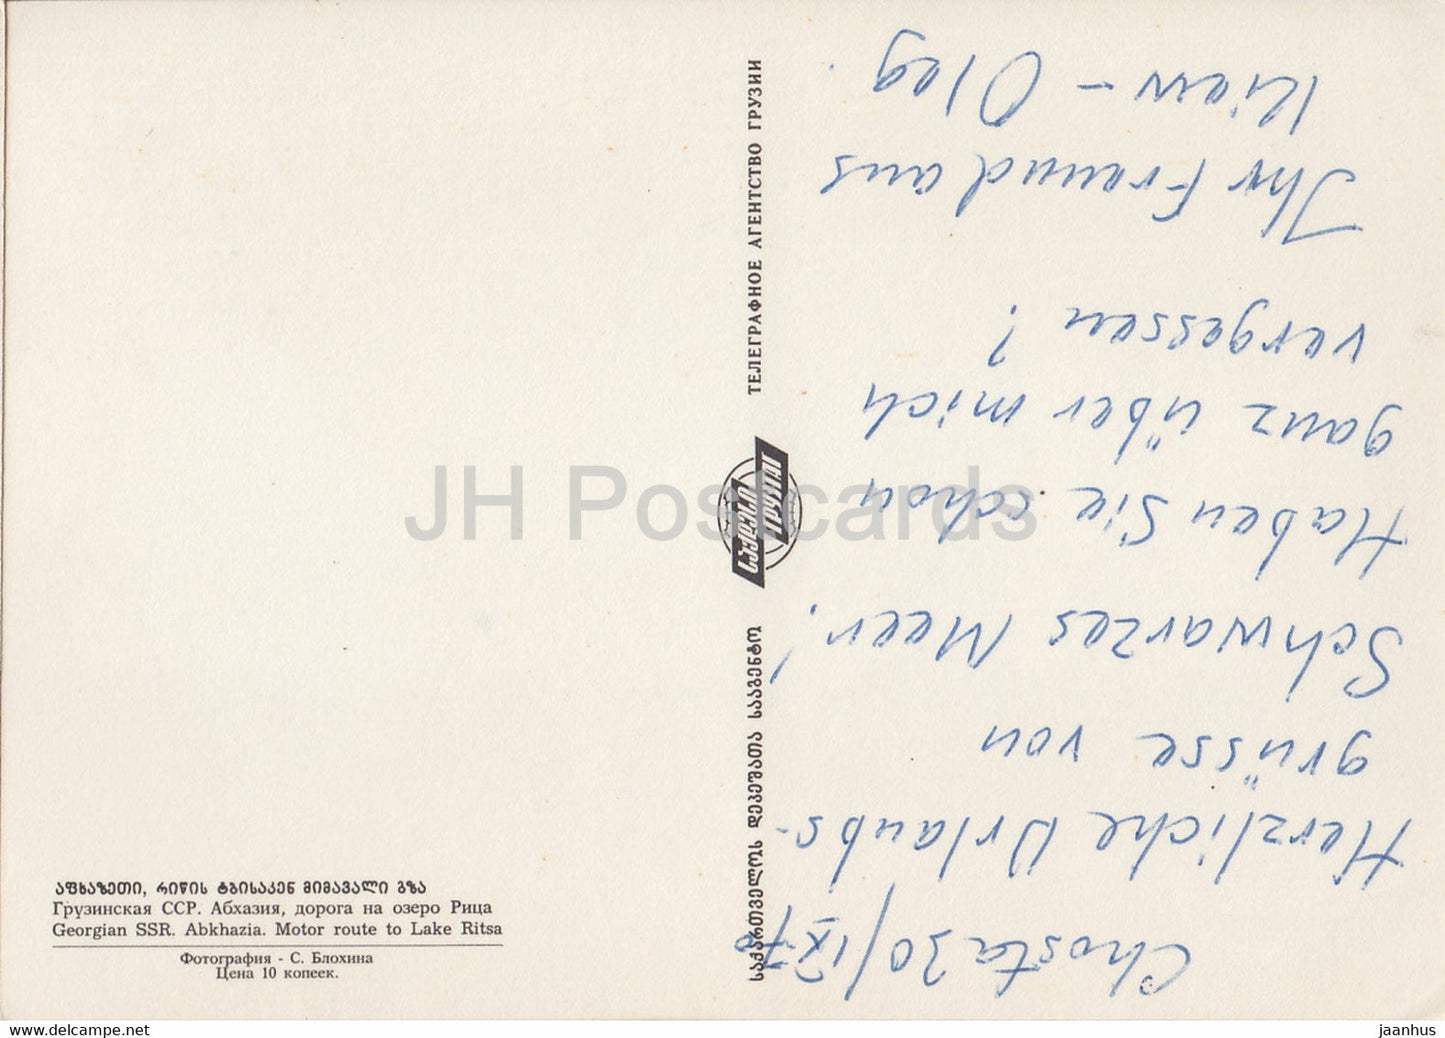 Chosta 30/IX 70
Herzliche Urlaubs-
grüsse von
Schwarzes Meer!
Haben Sie schon
ganz über mich
vergessen?
Ihr Freund aus
Kiew - Oleg.
საქართველოს დეპეშათა სააგენტო
საქდესი
ГРУЗТАГ
ТЕЛЕГРАФНОЕ АГЕНТСТВО ГРУЗИИ
აფხაზეთი, რიწის ტბისაკენ მიმავალი გზა
Грузинская ССР. Абхазия, дорога на озеро Рица
Georgian SSR. Abkhazia. Motor route to Lake Ritsa
Фотография - С. Блохина
Цена 10 копеек.
JH Postcards
jaanhus / delcampe.net